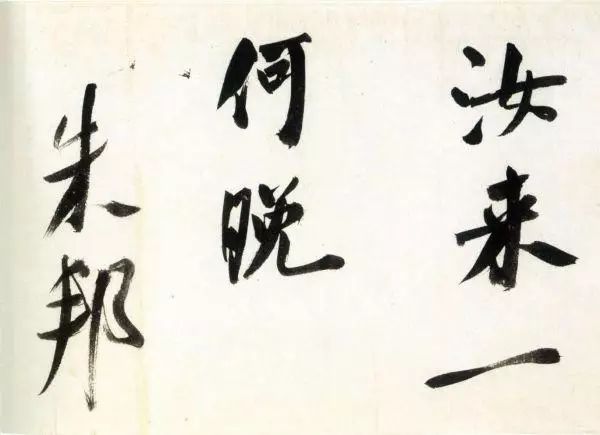 汝来一
何晚
朱邦